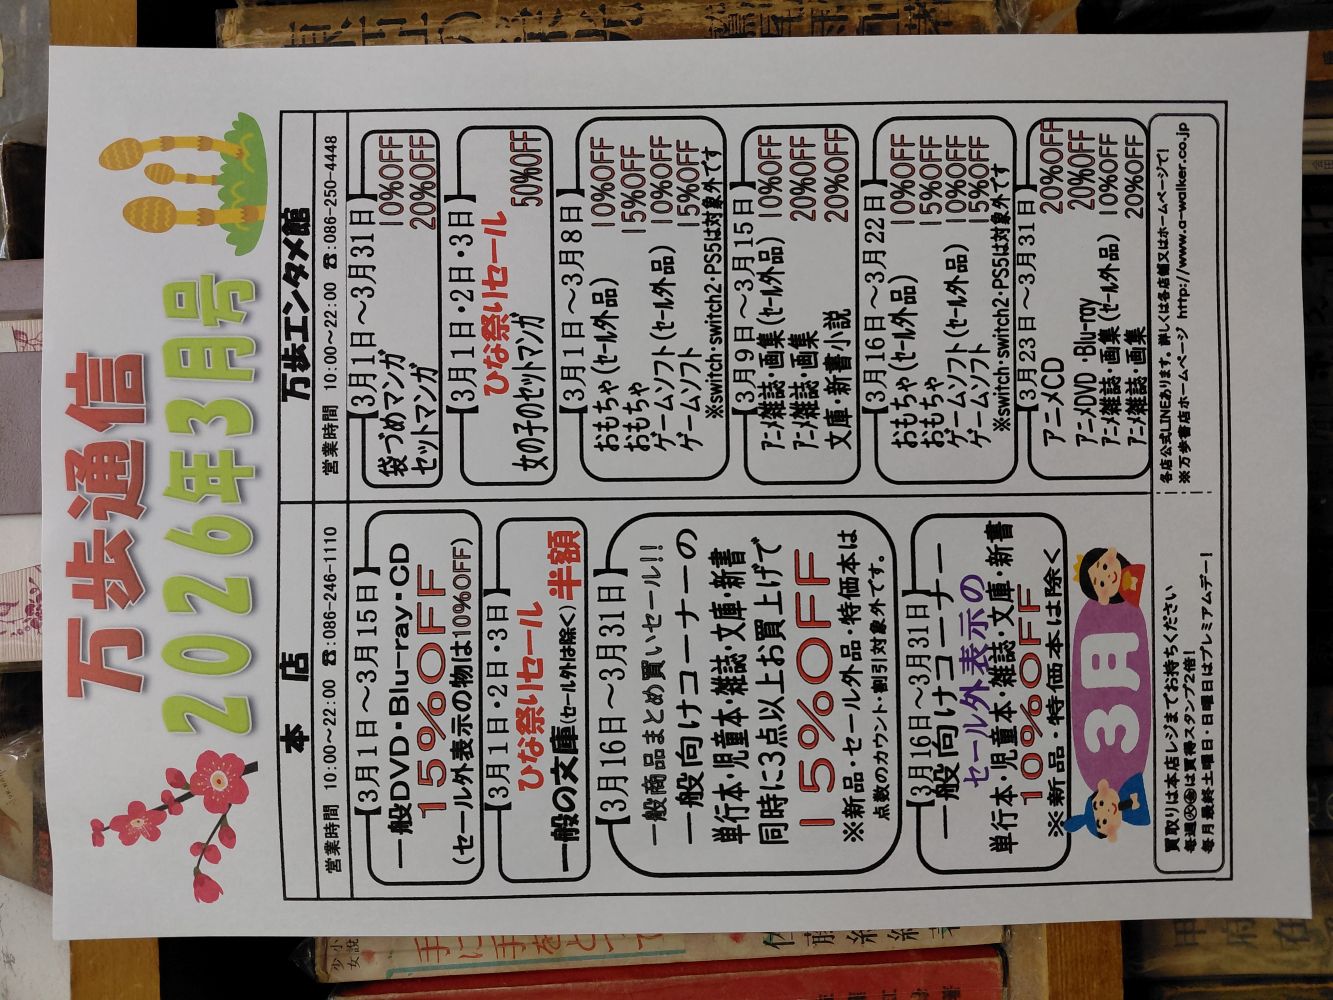 万歩通信
2026年3月号
本店
営業時間 10:00～22:00 ☎:086-246-1110
【3月1日～3月15日】
一般DVD・Blu-ray・CD
15%OFF
(セール外表示の物は10%OFF)
【3月1日・2日・3日】
ひな祭りセール
一般の文庫(セール外は除く)半額
【3月16日～3月31日】
一般商品まとめ買いセール!!
一般向けコーナーの
単行本・児童本・雑誌・文庫・新書
同時に3点以上お買上げで
15%OFF
※新品・セール外品・特価本は
点数のカウント・割引対象外です。
【3月16日～3月31日】
一般向けコーナー
セール外表示の
単行本・児童本・雑誌・文庫・新書
10%OFF
※新品・特価本は除く
3月
買取りは本店レジまでお持ちください
毎週㊋㊎は買得スタンプ2倍!
毎月最終土曜日・日曜日はプレミアムデー!
万歩エンタメ館
営業時間 10:00～22:00 ☎:086-250-4448
【3月1日～3月31日】
袋づめマンガ 10%OFF
セットマンガ 20%OFF
【3月1日・2日・3日】
ひな祭りセール
女の子のセットマンガ 50%OFF
【3月1日～3月8日】
おもちゃ(セール外品) 10%OFF
おもちゃ 15%OFF
ゲームソフト(セール外品) 10%OFF
ゲームソフト 15%OFF
※switch・switch2・PS5は対象外です
【3月9日～3月15日】
アニメ雑誌・画集(セール外品) 10%OFF
アニメ雑誌・画集 20%OFF
文庫・新書小説 20%OFF
【3月16日～3月22日】
おもちゃ(セール外品) 10%OFF
おもちゃ 15%OFF
ゲームソフト(セール外品) 10%OFF
ゲームソフト 15%OFF
※switch・switch2・PS5は対象外です
【3月23日～3月31日】
アニメCD 20%OFF
アニメDVD・Blu-ray 20%OFF
アニメ雑誌・画集(セール外品) 10%OFF
アニメ雑誌・画集 20%OFF
各店公式LINEあります。詳しくは各店舗又はホームページで!
※万歩書店ホームページ http://www.a-walker.co.jp
少女小説
手に手をとって
佐藤